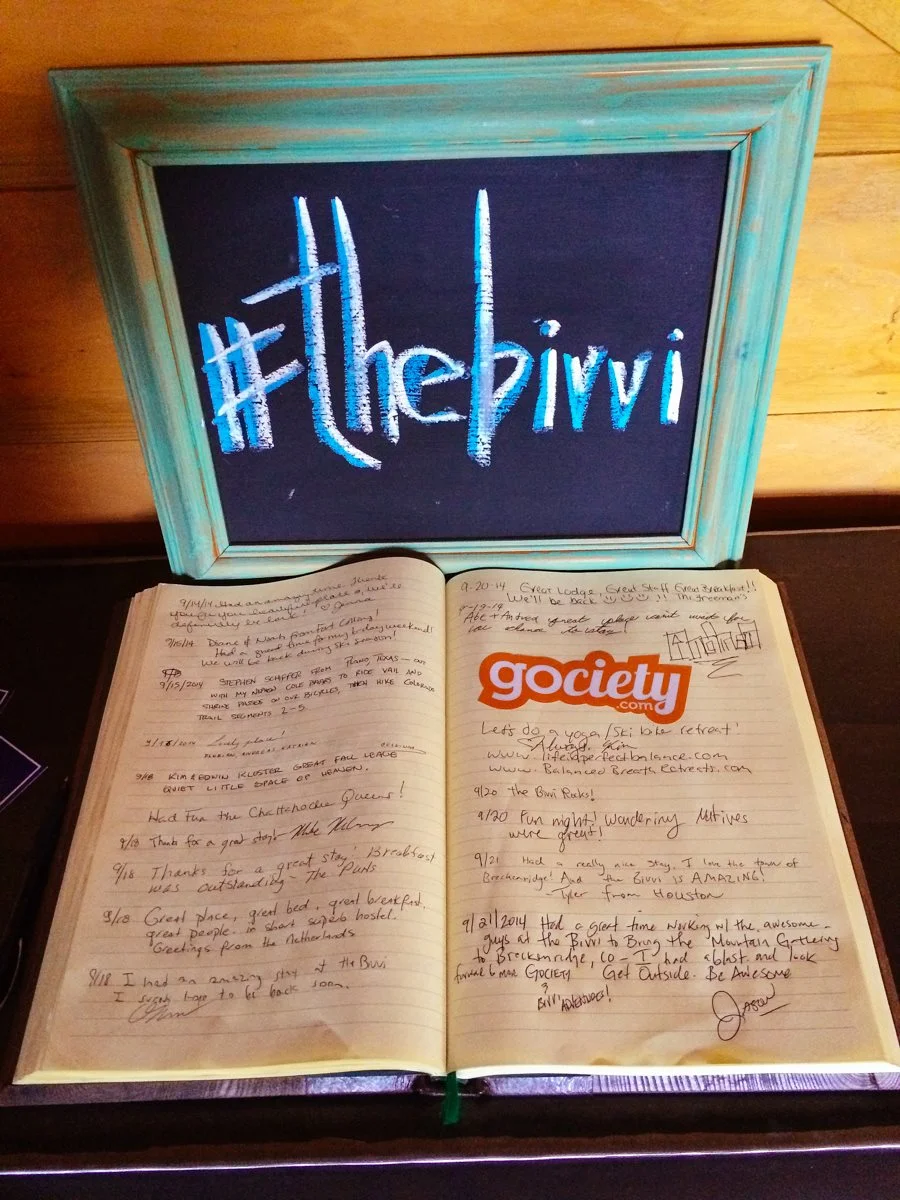 #thebivvi
9/14/14 Had an amazing time. Thank
you for your beautiful place & we'll
definitely be back! ♡ Jenna
9/15/14 Diane & Noah from Fort Collins!
Had a great time for my b-day weekend!
We will be back during ski season!
9/15/2014 STEPHEN SCHIFFER FROM PLANO, TEXAS – OUT
WITH MY NEPHEW COLE TO RIDE VAIL AND
SHRINE PASSES ON OUR BICYCLES, THEN HIKE COLORADO
TRAIL SEGMENTS 2-5.
Lovely place!
9/18 KIM & EDWIN KLUSTER GREAT FALL LEAVE
QUIET LITTLE SPACE OF HEAVEN.
Had fun the Chattahoochie Queens!
9/18 Thanks for a great stay!
9/18 Thanks for a great stay! Breakfast
was outstanding – The
9/18 Great place, great bed, great breakfast,
great people. in short superb hostel.
Greetings from the Netherlands
9/18 I had an amazing stay at the Bivvi
I surely hope to be back soon.
9-20-14 Great Lodge, Great Staff Great Breakfast!!
We'll be back !! The Freeman's
9-19-14
Abe + Andrea great place can't wait for
to stay
gociety
.com
Let's do a yoga/ski bike retreat!
♡ Always, Kim
www.lifeisaperfectbalance.com
www.BalancedBreathRetreats.com
9/20 The Bivvi Rocks!
9/20 Fun night! Wandering Natives
were great!
9/21 Had a really nice stay, I love the town of
Breckenridge! And the Bivvi is AMAZING!
- Tyler from Houston
9/21/2014 Had a great time working w/ the awesome
guys at the Bivvi to Bring the Mountain Gathering
to Breckenridge, CO – I had a blast and look
forward to more GOCIETY Get Outside. Be Awesome
& BIVVI ADVENTURES!
Jason